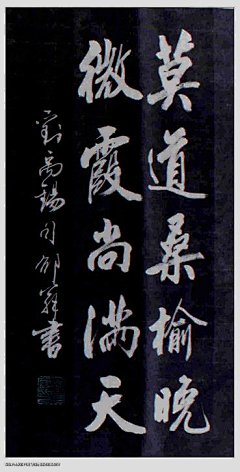 莫道桑榆晚
微霞尚满天
刘禹锡句
书